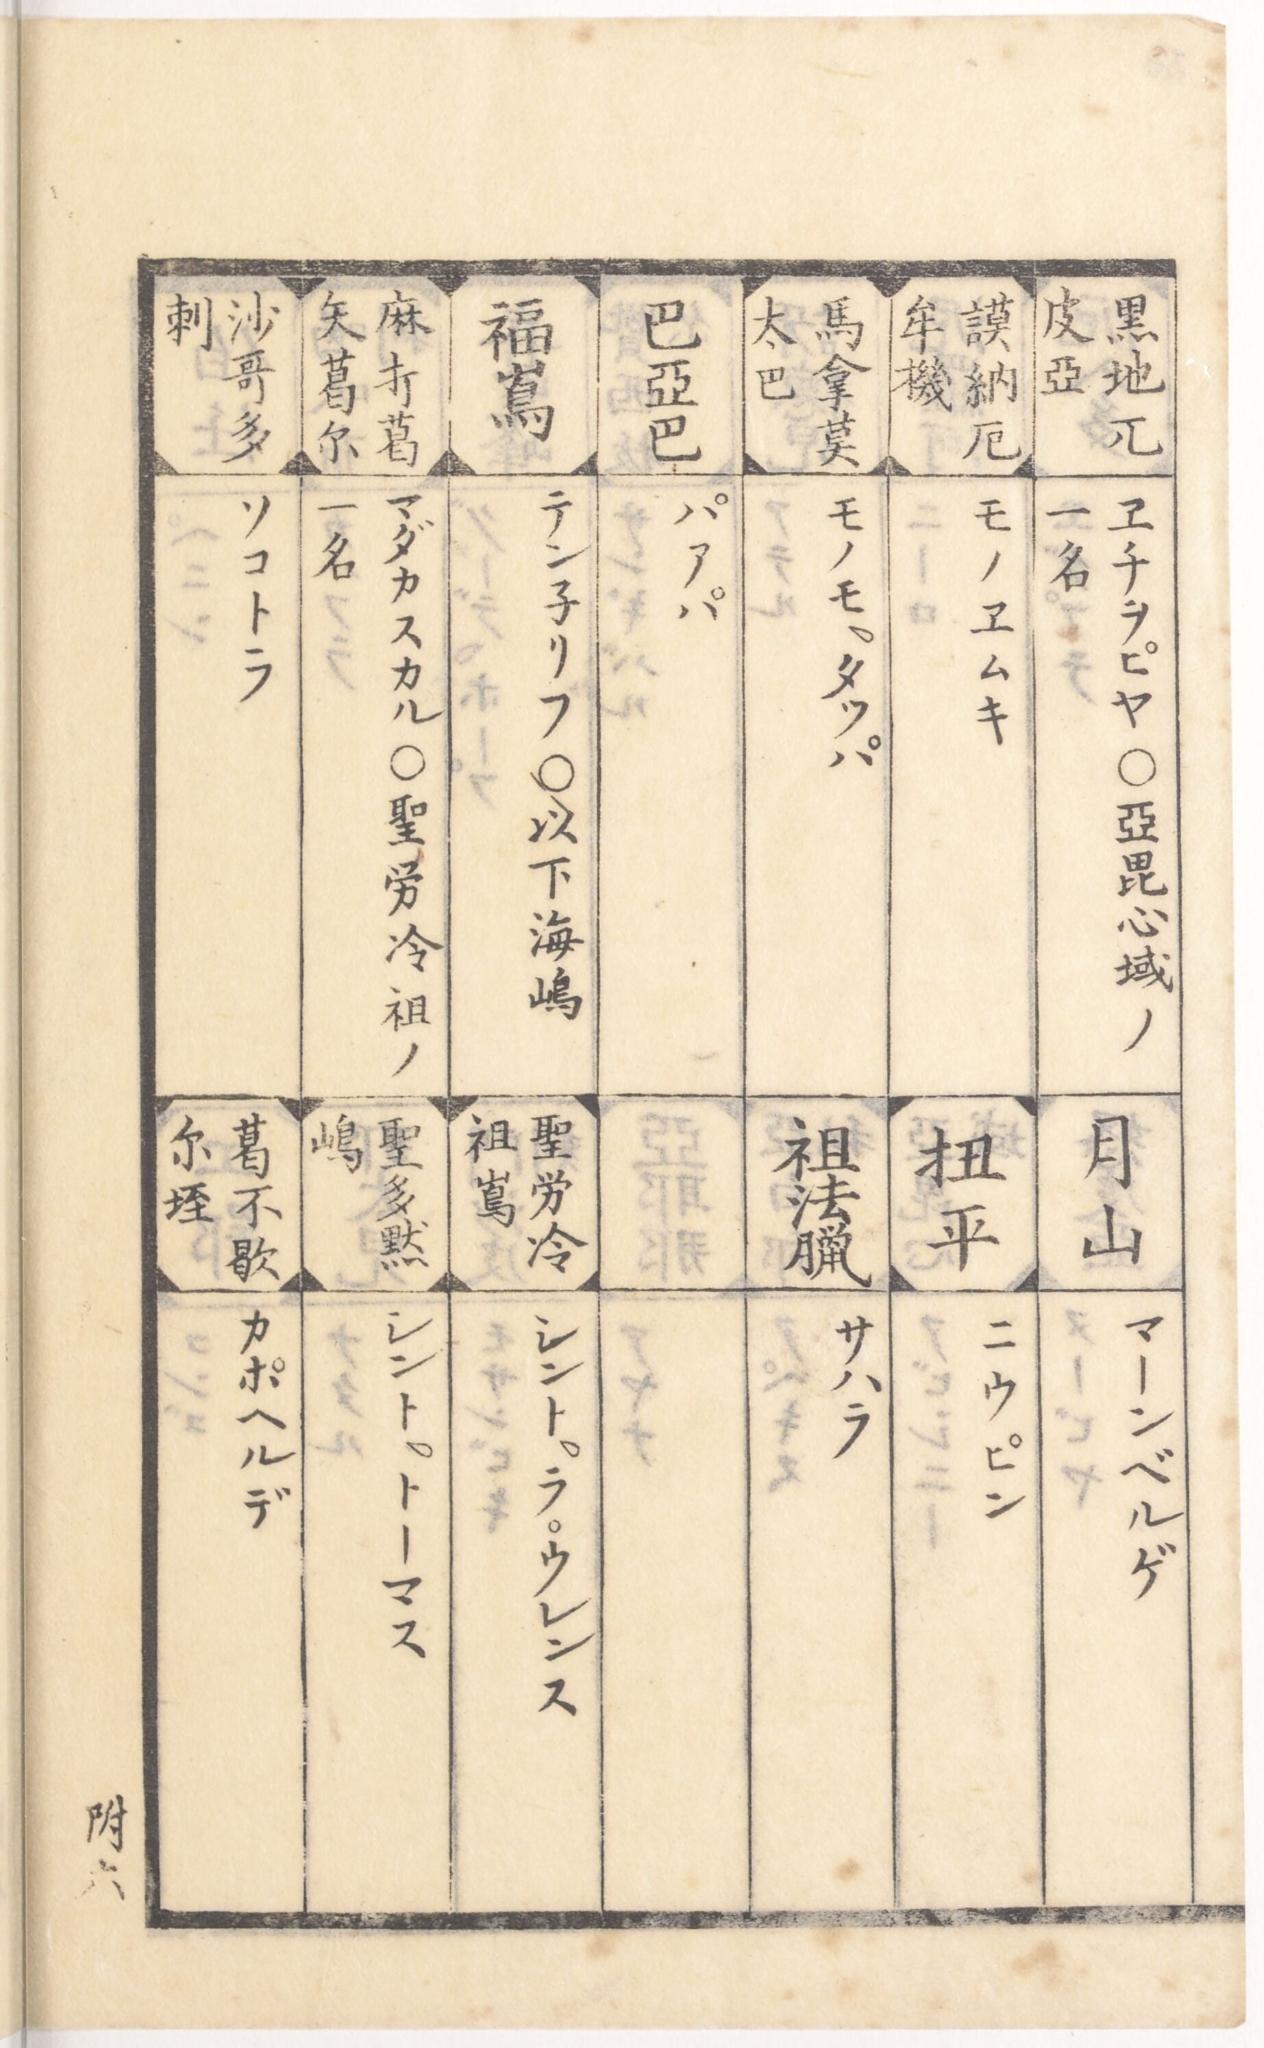 黒地兀
皮亞
ヱチヲピヤ〇亞毘心域ノ
一名
謨納厄
牟機
モノヱムキ
馬拿莫
太巴
モノモ゜タッパ
巴亞巴
パアパ
福嶌
テン子リフ〇以下海嶋
麻打葛
矢葛尓
マダカスカル〇聖労冷祖ノ
一名
沙哥多
刺
ソコトラ
月山
マーンベルゲ
扭平
ニウピン
祖法臘
サハラ
聖労冷
祖嶌
シント゜ラ゜ウレンス
聖多黙
嶋
シント゜トーマス
葛不歇
尓垤
カポヘルデ
附六